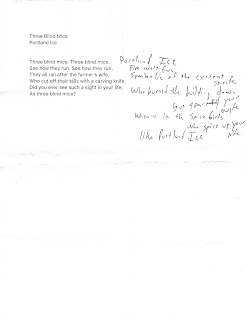 Three Blind Mice
Portland Ice
Three blind mice. Three blind mice.
See how they run. See how they run.
They all ran after the farmer's wife,
Who cut off their tails with a carving knife,
Did you ever see such a sight in your life,
As three blind mice?
Portland Ice
Five more fun
Symbolic of the current
strife
Who burned the building down
but spared your
wife
in the Spice Girls
who spice up your
life
like Portland Ice